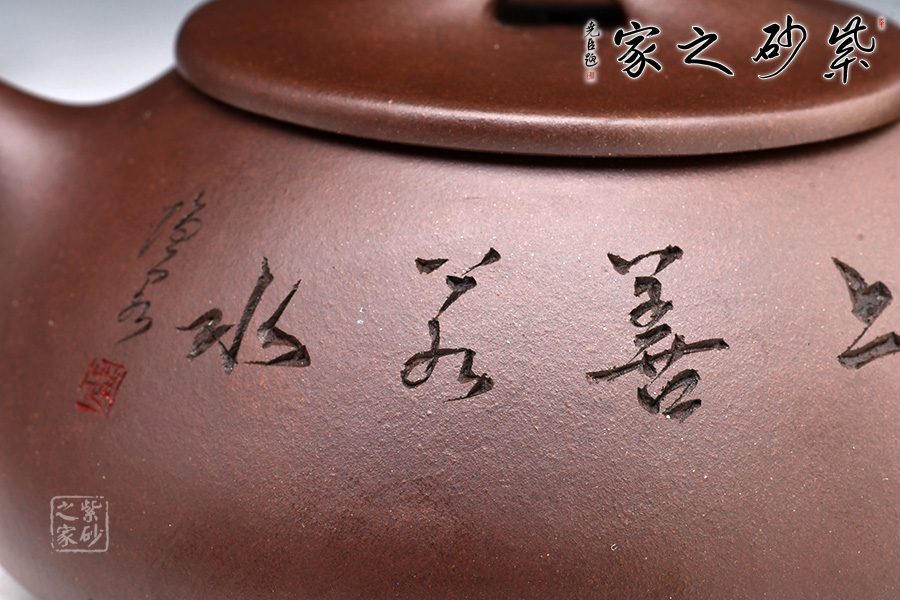 紫砂之家
上善若水
紫砂
之家